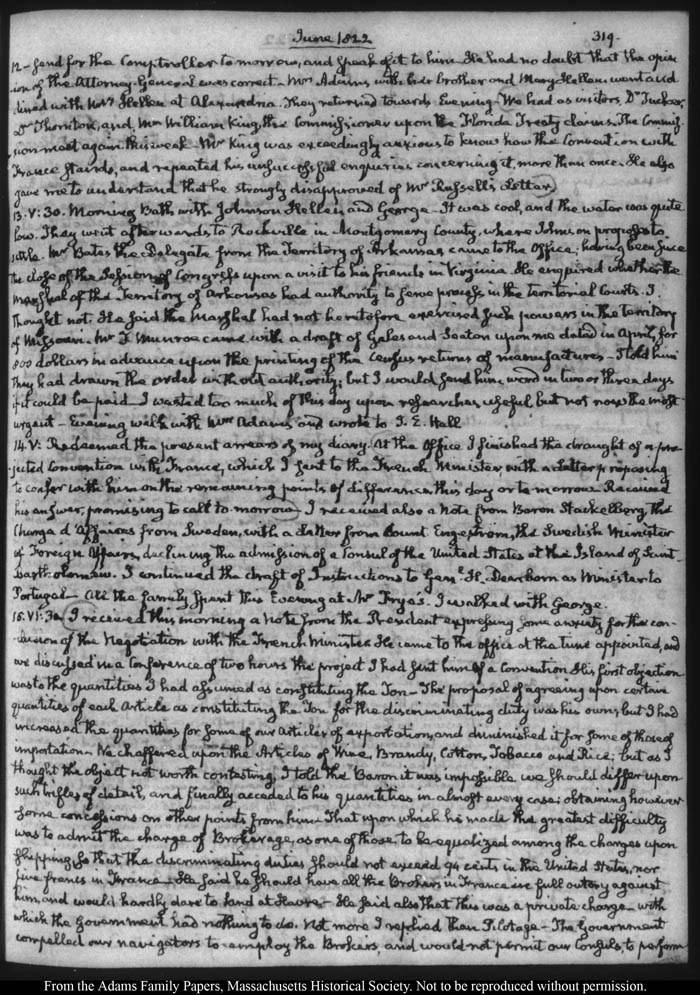 June 1822
319.
12 – send for the Comptroller to morrow, and speak of it to him. He had no doubt that the opin-
ion of the Attorney General was correct – Mrs Adams, with her brother and Mary Hellen went and
dined with Mrs Hellen at Alexandria. They returned towards Evening – We had as visitors, Dr Tucker,
Dr Thornton, and Mr William King, the Commissioner upon the Florida Treaty claims. The Commis-
sion meet again this week – Mr King was exceedingly anxious to know how the Convention with
France stands, and repeated his unsuccessful enquiries concerning it, more than once. He also
gave me to understand that he strongly disapproved of Mr Russell's Letter.
13. V: 30. Morning Bath with Johnson Hellen and George. It was cool, and the water was quite
low. They went afterwards to Rockville in Montgomery County, where Johnson proposes to
settle. Mr Bates the Delegate from the Territory of Arkansas came to the Office, having been since
the close of the Session of Congress upon a visit to his friends in Virginia. He enquired whether the
Marshal of the Territory of Arkansas had authority to serve process in the territorial Courts. I
thought not. He said the Marshal had not heretofore exercised such powers in the territory
of Missouri. Mr T. Munroe came with a draft of Gales and Seaton upon me dated in April, for
800 dollars in advance upon the printing of the Census returns of manufactures – I told him
they had drawn the order without authority; but I would send him word in two or three days
if it could be paid. I wasted too much of this day upon researches, useful but not now the most
urgent – Evening walk with Mrs Adams and wrote to J. E. Hall
14. V: Redeemed the present arrears of my diary. At the Office I finished the draught of a pro-
jected Convention with France, which I sent to the French Minister, with a Letter proposing
to confer with him on the remaining points of difference this day or to-morrow. Received
his answer, promising to call to-morrow – I received also a Note from Baron Stackelberg, the
Chargé d'Affaires from Sweden, with a Letter from Count Engeström, the Swedish Minister
of Foreign Affairs, declining the admission of a Consul of the United States at the Island of Saint-
Bartholomew. I continued the draft of Instructions to Genl H. Dearborn as Minister to
Portugal – All the family spent this Evening at Mr Frye's. I walked with George.
15. VI: 30. I received this morning a Note from the President expressing some anxiety for the con-
clusion of the Negotiation with the French Minister. He came to the office at the time appointed, and
we discussed in a Conference of two hours the project I had sent him of a Convention. His first objection
was to the quantities I had assumed as constituting the Ton – The proposal of agreeing upon certain
quantities of each Article as constituting the Ton for the discriminating duty was his own; but I had
increased the quantities for some of our articles of exportation, and diminished it for some of those of
importation. We chaffered upon the Articles of Wine, Brandy, Cotton, Tobacco and Rice; but as I
thought the object not worth contesting, I told the Baron it was impossible we should differ upon
such trifles of detail, and finally acceded to his quantities in almost every case: obtaining however
some concessions on other points from him. That upon which he made the greatest difficulty
was to admit the charge of Brokerage, as one of those to be equalized among the charges upon
shipping, so that the discriminating duties should not exceed 94 cents in the United States, nor
five francs in France. He said he should have all the Brokers in France in full outcry against
him, and would hardly dare to land at Havre – He said also that this was a private charge with
which the Government had nothing to do. Not more I replied than Pilotage – The Government
compelled our navigators to employ the Brokers, and would not permit our Consuls, to perform
From the Adams Family Papers, Massachusetts Historical Society. Not to be reproduced without permission.